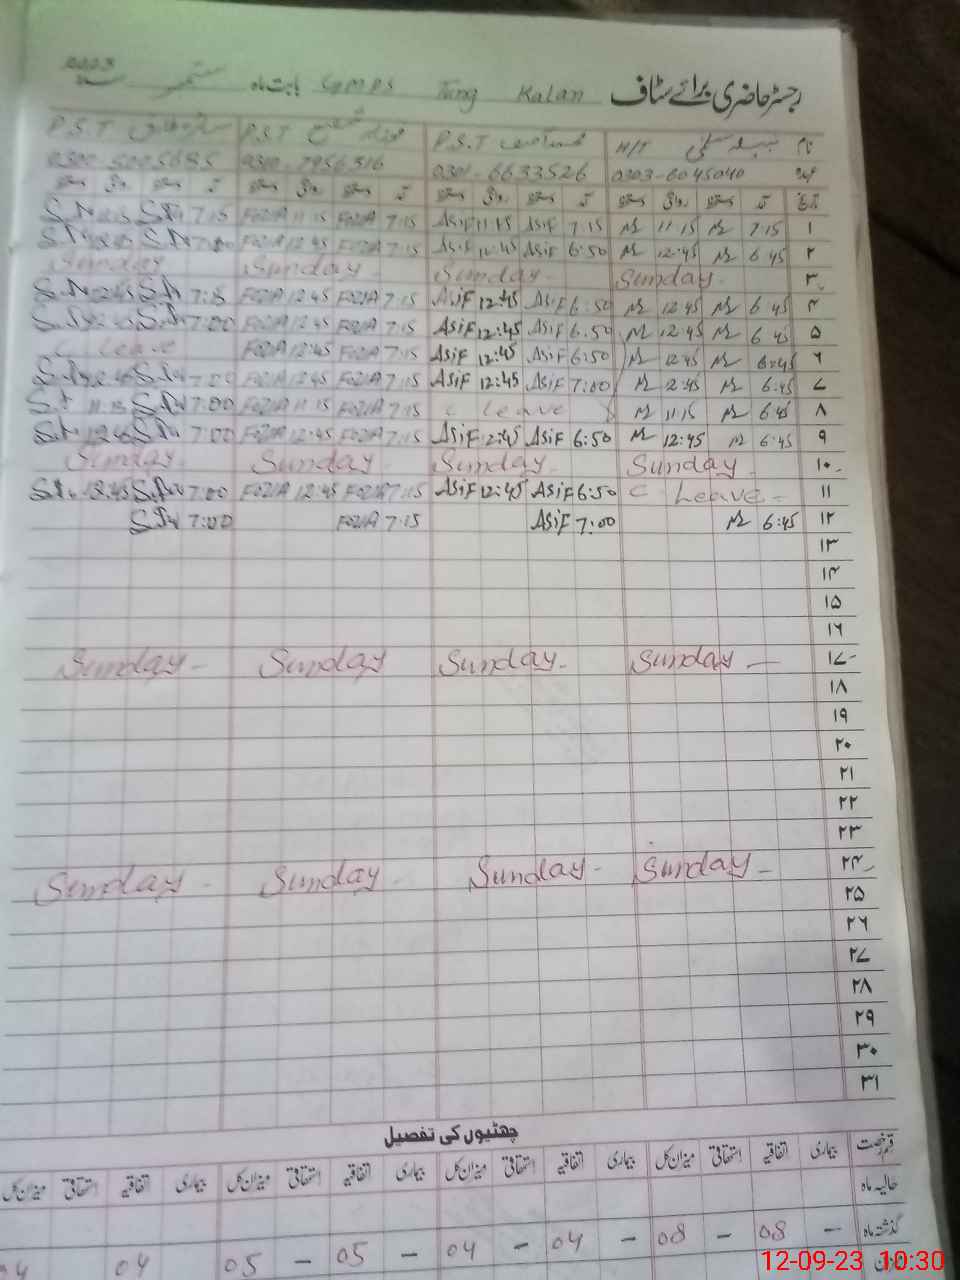 رجسٹر حاضری برائے سٹاف Tung Kalan GMPS بابت ماہ ستمبر 2023
نام H/T P.S.T P.S.T P.S.T
عہدہ 0303-6045040 0301-6633526 0300-7956516 0300-5005685
تاریخ آمد دستخط روانگی دستخط آمد دستخط روانگی دستخط آمد دستخط روانگی دستخط آمد دستخط روانگی دستخط
۱ 7:15 11:15 7:15 Asif 11:15 Asif 7:15 FOZIA 11:15 FOZIA 7:15
۲ 6:45 12:45 6:50 Asif 12:45 Asif 7:15 FOZIA 12:45 FOZIA 7:00
۳ Sunday Sunday Sunday Sunday
۴ 6:45 12:45 6:50 Asif 12:45 Asif 7:15 FOZIA 12:45 FOZIA 7:15
۵ 6:45 12:45 6:50 Asif 12:45 Asif 7:15 FOZIA 12:45 FOZIA 7:00
۶ 6:45 12:45 6:50 Asif 12:45 Asif 7:15 FOZIA 12:45 FOZIA C Leave
۷ 6:45 2:45 7:00 Asif 12:45 Asif 7:15 FOZIA 12:45 FOZIA
۸ 6:45 11:15 C Leave 7:15 FOZIA 11:15 FOZIA 7:00 11:15
۹ 6:45 12:45 6:50 Asif 2:45 Asif 7:15 FOZIA 12:45 FOZIA 7:00 12:45
۱۰ Sunday Sunday Sunday Sunday
۱۱ C Leave 6:50 Asif 12:45 Asif 7:15 FOZIA 12:45 FOZIA 7:00 12:45
۱۲ 6:45 7:00 Asif 7:15 FOZIA 7:00
۱۳
۱۴
۱۵
۱۶
۱۷ Sunday Sunday Sunday Sunday
۱۸
۱۹
۲۰
۲۱
۲۲
۲۳
۲۴ Sunday Sunday Sunday Sunday
۲۵
۲۶
۲۷
۲۸
۲۹
۳۰
۳۱
چھٹیوں کی تفصیل
قسم رخصت بیماری اتفاقیہ استحقاقی میزان کل بیماری اتفاقیہ استحقاقی میزان کل بیماری اتفاقیہ استحقاقی میزان کل بیماری اتفاقیہ استحقاقی میزان کل
حالیہ ماہ
گذشتہ ماہ - 08 - 08 - 04 - 04 - 05 - 05 04
میزان
12-09-23 10:30